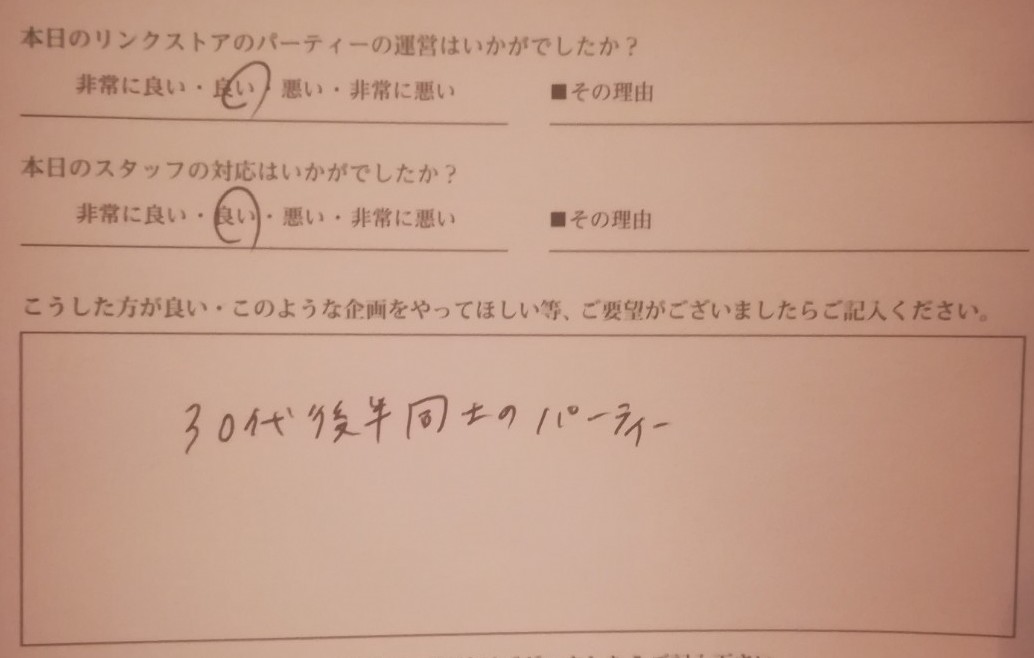 本日のリンクストアのパーティーの運営はいかがでしたか？
非常に良い・良い・悪い・非常に悪い　■その理由
本日のスタッフの対応はいかがでしたか？
非常に良い・良い・悪い・非常に悪い　■その理由
こうした方が良い・このような企画をやってほしい等、ご要望がございましたらご記入ください。
30代後半同士のパーティー